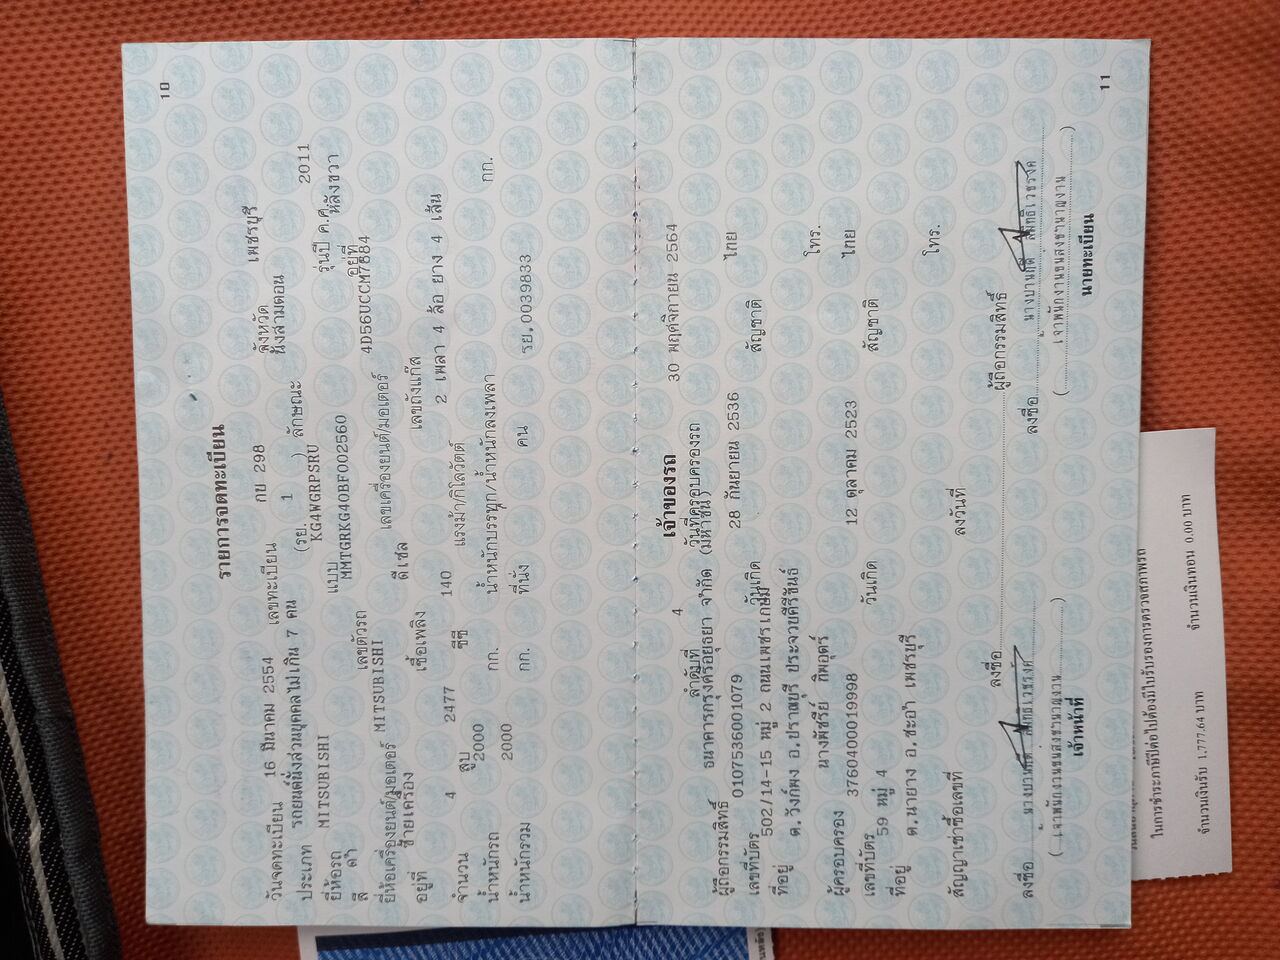 10
รายการจดทะเบียน
วันจดทะเบียน 16 มีนาคม 2554 เลขทะเบียน กย 298 จังหวัด เพชรบุรี
ประเภท รถยนต์นั่งส่วนบุคคลไม่เกิน 7 คน (รย. 1 ) ลักษณะ นั่งสามตอน
ยี่ห้อรถ MITSUBISHI แบบ KG4WGRPSRU รุ่นปี ค.ศ. 2011
สี ดำ เลขตัวรถ MMTGRKG40BF002560 อยู่ที่ หลังขวา
ยี่ห้อเครื่องยนต์/มอเตอร์ MITSUBISHI เลขเครื่องยนต์/มอเตอร์ 4D56UCCM7684
อยู่ที่ ซ้ายเครื่อง เชื้อเพลิง ดีเซล เลขถังแก๊ส
จำนวน 4 สูบ 2477 ซีซี 140 แรงม้า/กิโลวัตต์ 2 เพลา 4 ล้อ ยาง 4 เส้น
น้ำหนักรถ 2000 กก. น้ำหนักบรรทุก/น้ำหนักลงเพลา กก.
น้ำหนักรวม 2000 กก. ที่นั่ง คน รย.0039833
เจ้าของรถ
ลำดับที่ 4 วันที่ครอบครองรถ 30 พฤศจิกายน 2564
ผู้ถือกรรมสิทธิ์ ธนาคารกรุงศรีอยุธยา จำกัด (มหาชน)
เลขที่บัตร 0107536001079 วันเกิด 28 กันยายน 2536 สัญชาติ ไทย
ที่อยู่ 502/14-15 หมู่ 2 ถนนเพชรเกษม
ต.วังก์พง อ.ปราณบุรี ประจวบคีรีขันธ์ โทร.
ผู้ครอบครอง นางพัชรีย์
เลขที่บัตร 3760400019998 วันเกิด 12 ตุลาคม 2523 สัญชาติ ไทย
ที่อยู่ 59 หมู่ 4
ต.นายาง อ.ชะอำ เพชรบุรี โทร.
สัญญาเช่าซื้อเลขที่ ลงวันที่
ลงชื่อ ผู้ถือกรรมสิทธิ์
ลงชื่อ ลงชื่อ
( เจ้าพนักงานขนส่งชำนาญงาน ) ( เจ้าพนักงานขนส่งชำนาญงาน )
เจ้าหน้าที่ นายทะเบียน
11
ในการชำระภาษีปีต่อไปต้องมีใบรับรองการตรวจสภาพรถ
จำนวนเงินรับ 1,777.64 บาท จำนวนเงินทอน 0.00 บาท